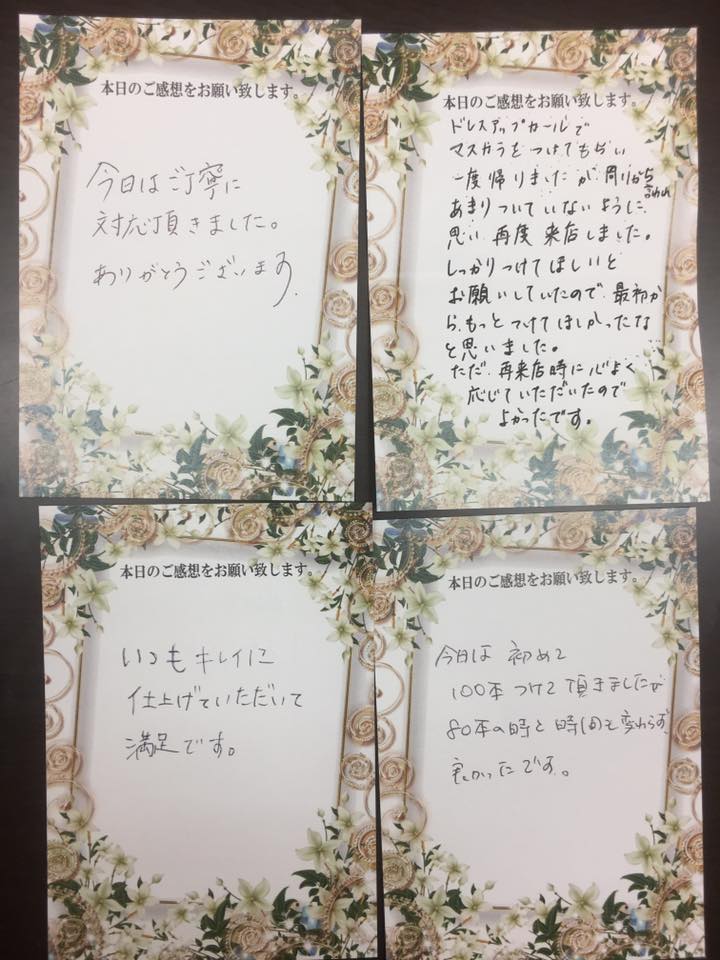 本日のご感想をお願い致します。
今日はご丁寧に
対応頂きました。
ありがとうございます.
本日のご感想をお願い致します。
ドレスアップカールで
マスカラをつけてもらい
一度帰りましたが周りから
言われ
あまりついていないように
思い再度来店しました。
しっかりつけてほしいと
お願いしていたので、最初か
ら、もっとつけてほしかったな
と思いました。
ただ、再来店時に心よく
応じていただいたので
よかったです。
本日のご感想をお願い致します。
いつもキレイに
仕上げていただいて
満足です。
本日のご感想をお願い致します。
今日は初めて
100本つけて頂きましたが
80本の時と時間も変わらず、
良かったです。